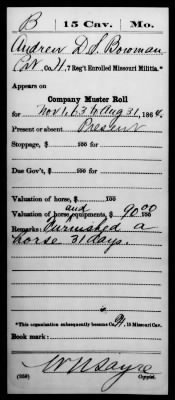 B 15 Cav. Mo.
Andrew D S. Bowman
Co. H, 7 Reg't Enrolled Missouri Militia.*
Appears on
Company Muster Roll
for Nov 1, 63 to Aug 31, 1864.
Present or absent Present
Stoppage, $ 100 for
Due Gov't, $ 100 for
Valuation of horse, $ 100
and
Valuation of horse equipments, $ 90.00 100
Remarks: Furnished a
horse 31 days.
*This organization subsequently became Co. 15 Missouri Cav.
Book mark:
(358) Copyist.